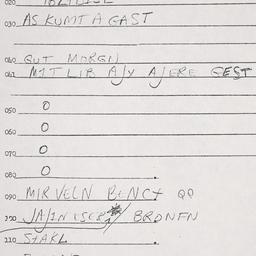 030 AS KUMT A GAST
040 GUT MORGN
041 MIT LIB AJY AJERE GEST
050 0
060 0
070 0
080 0
090 MIR VELN
100 BRONFN
110 STARK